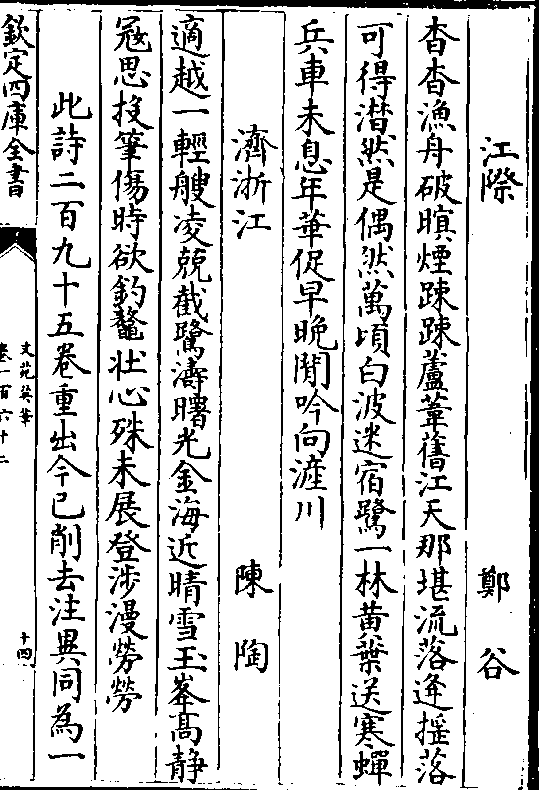 江際　鄭谷
杳杳漁舟破暝煙踈踈蘆葦舊江天那堪流落逢揺落
可得潸然是偶然萬頃白波迷宿鷺一林黄葉送寒蟬
兵車未息年華促早晚閒吟向滻川
濟浙江　陳陶
適越一輕艘凌兢截鷺濤曙光金海近晴雪玉峯髙静
冦思投筆傷時欲釣鼇壮心殊未展登涉漫勞勞
此詩二百九十五卷重出今已削去注異同為一
欽定四庫全書
文苑英華
卷一百六十二
十四